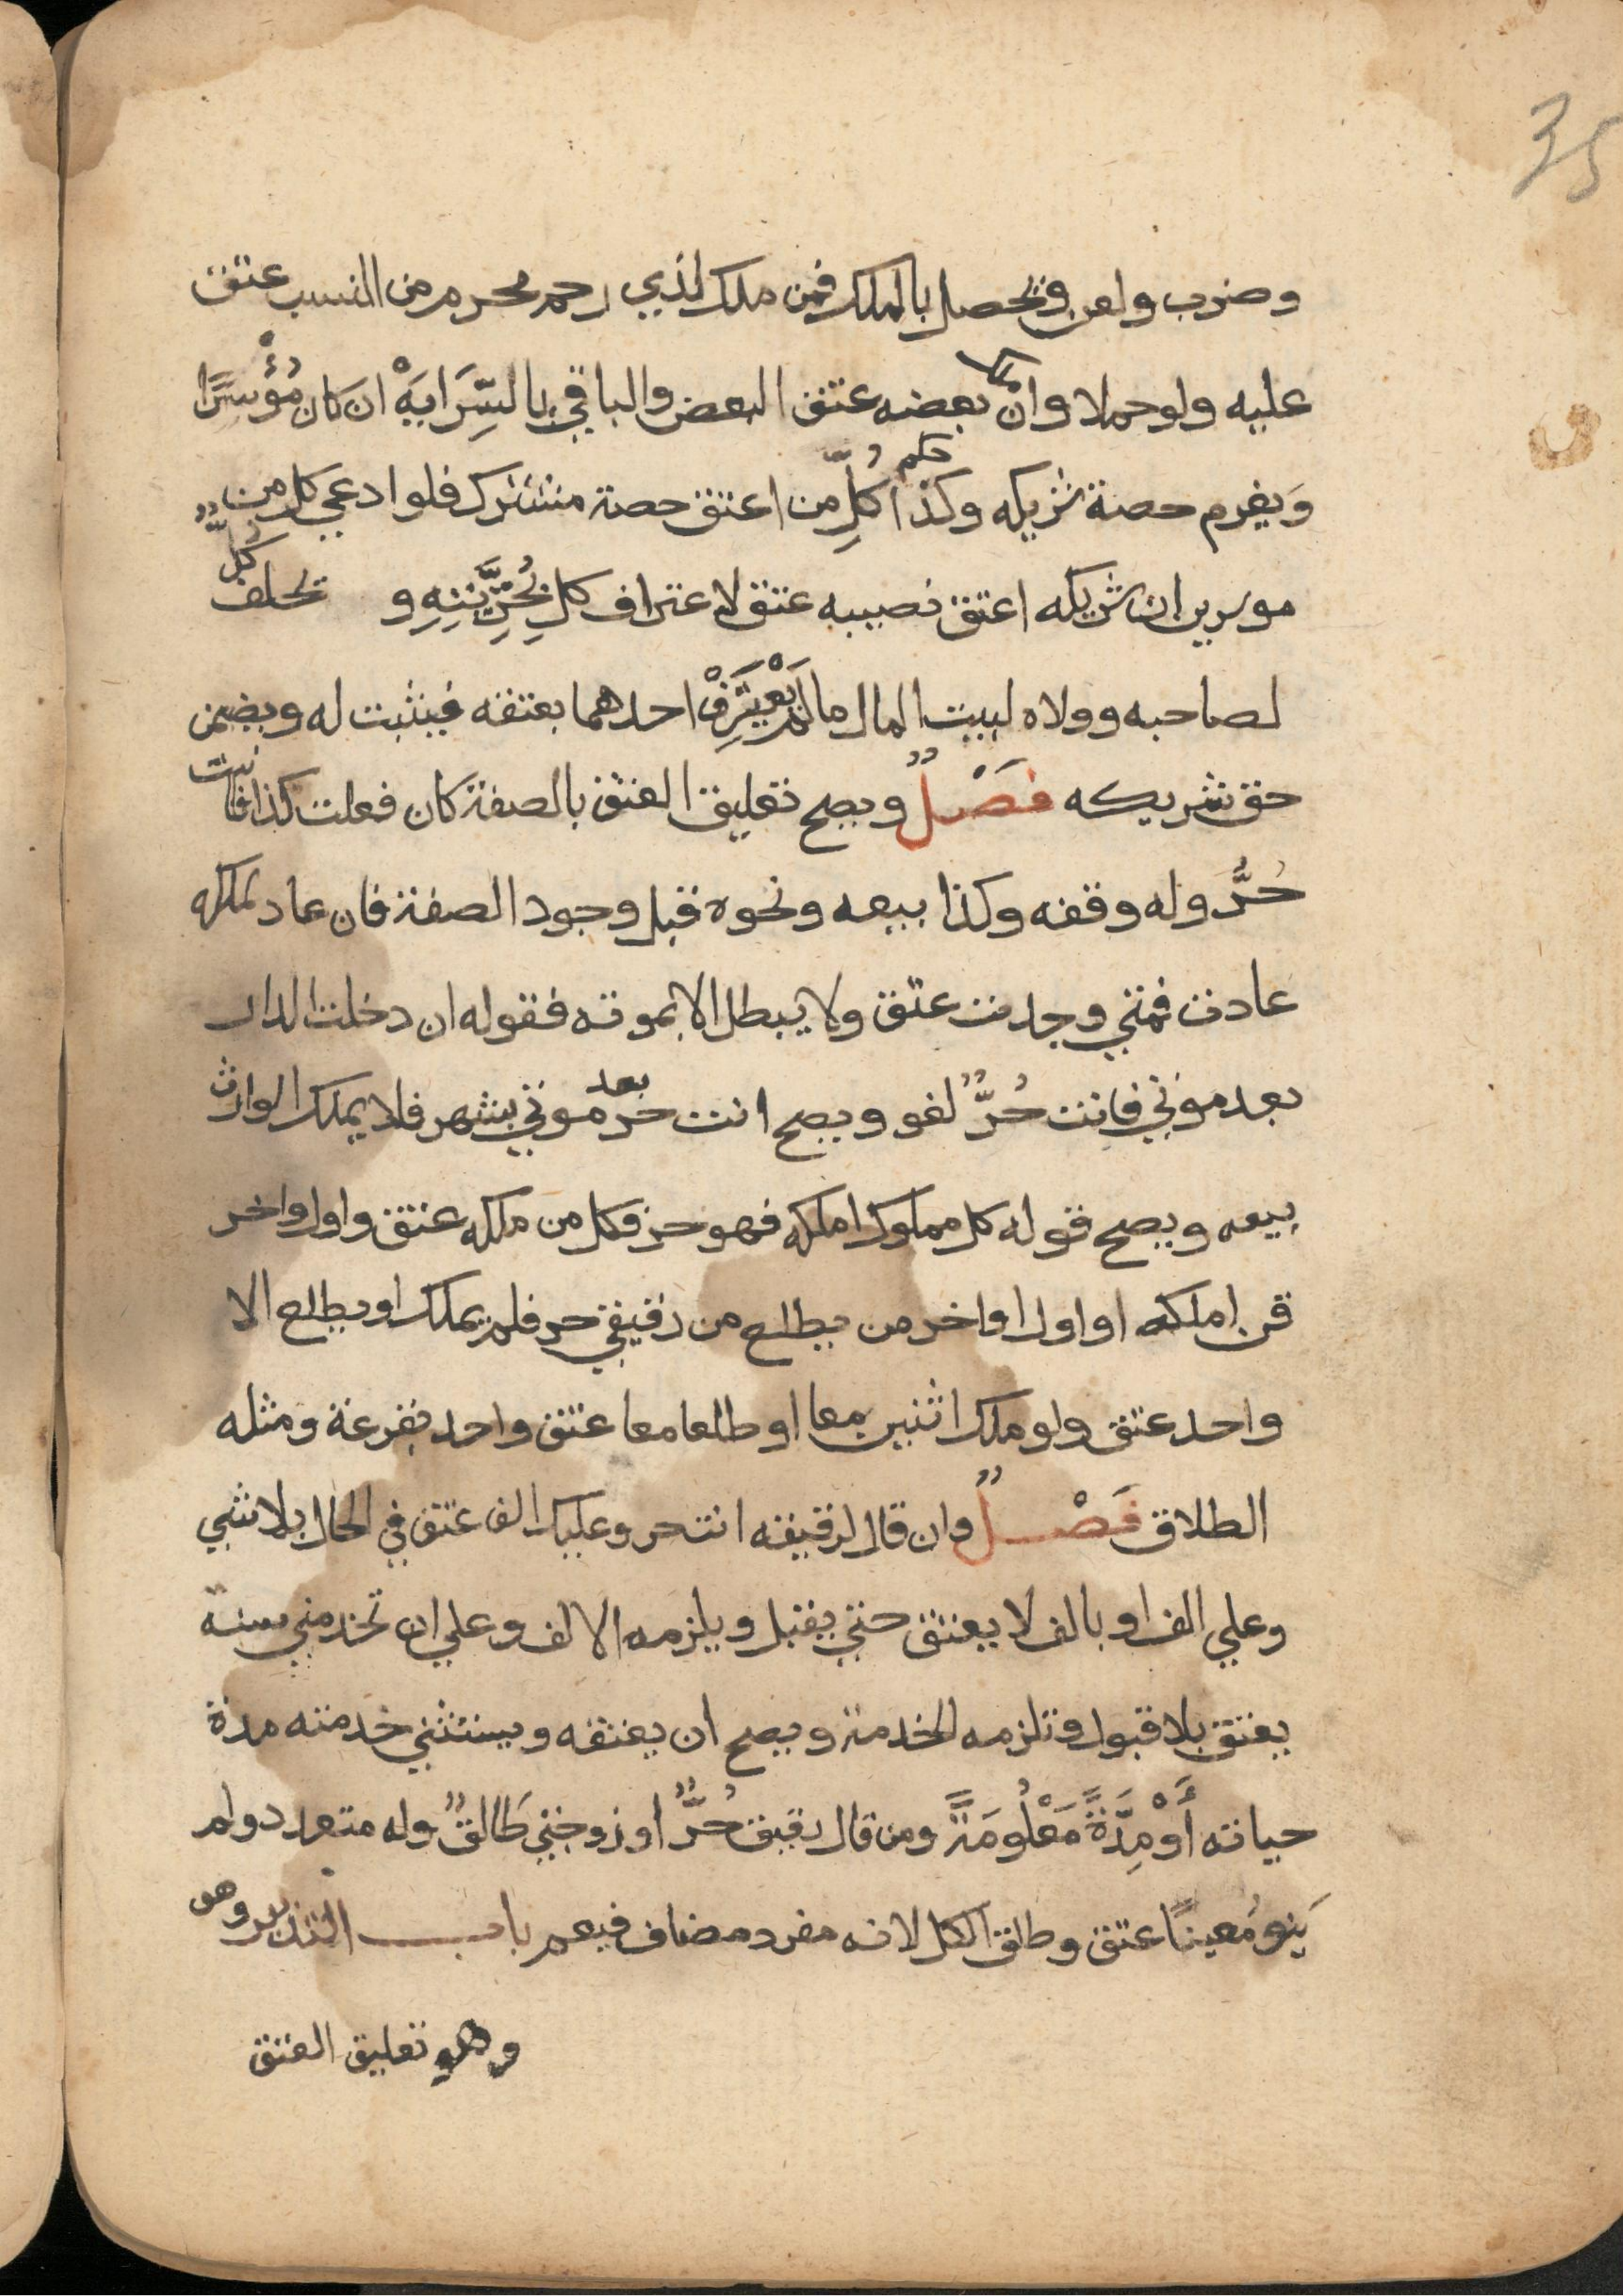 35
وضرب ولعن ويحصل بالملك فمن ملك لذي رحم محرم من النسب عتق
عليه ولو حملا وان ملك بعضه عتق البعض والباقي بالسِّرَايَةْ ان كَان مُؤْسَرًا
وَيغرم حصة شريكه وكذا حكم كُلِّ من اعتق حصة مشترك فلو ادعي كل من
موسرين ان شريكه اعتق نصيبه عتق لاعتراف كلِ بُحُرِّيَّتِهِ و يحلف كلٌّ
لصاحبه وولاه لبيت المال ما لَمْ يَعْتَرِفْ احدهما بعتقه فيثبت له ويضمن
حق شريكه فَصْلٌ ويصح تعليق العتق بالصفة كان فعلت كذا فانت
حُرٌّ وله وقفه وكذا بيعه ونحوه قبل وجود الصفة فان عاد لملكه
عادت فمتي وجدت عتق ولا يبطل الا بموته فقوله ان دخلت الدار
بعد موتي فانت حُرٌّ لغو ويصح انت حر بعد موتي بشهر فلا يملك الوارث
بيعه ويصح قوله كل مملوك املكه فهو حر فكل من ملكه عتق واول واخر
قن املكه او اول اواخر من يطلع من رقيقي حر فلم يملك او يطلع الا
واحد عتق ولو ملك اثنين معا او طلعا معا عتق واحد بقرعة ومثله
الطلاق فَصْلٌ وان قال لرقيقه انت حر وعليك الف عتق في الحال بلا شي
وعلي الف او بالف لا يعتق حتي يقبل ويلزمه الالف وعلي ان تخدمني سنة
يعتق بلا قبول وتلزمه الخدمة ويصح ان يعتقه ويستثني خدمته مدة
حياته أَوْ مِدَّةً مَعْلُومَةً ومن قال رقيق حُرٌّ او زوجتي طَالقٌ وله متعدد ولم
يَنوِ مُعينًا عتق وطلق الكل لانه مفرد مضاف فيعم باب التدبير وهو
وهو تعليق العتق